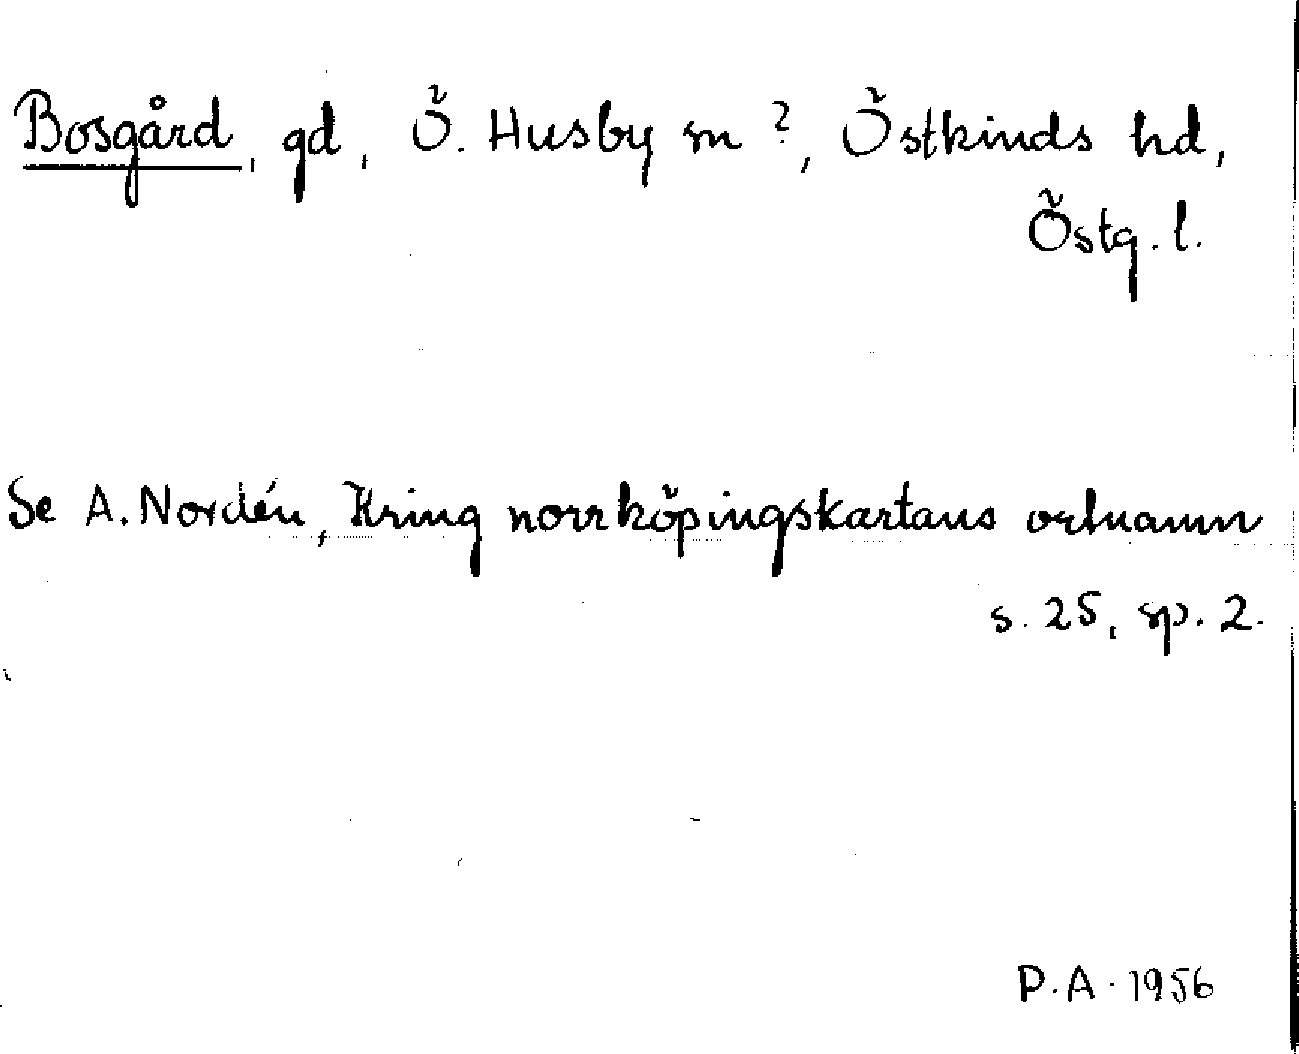 Bosgård, gd, Ö. Husby sn ?, Östkinds hd,
Östg. l.
Se A. Nordén, Kring norrköpingskartans ortnamn
s. 25, sp. 2.
P.A. 1956